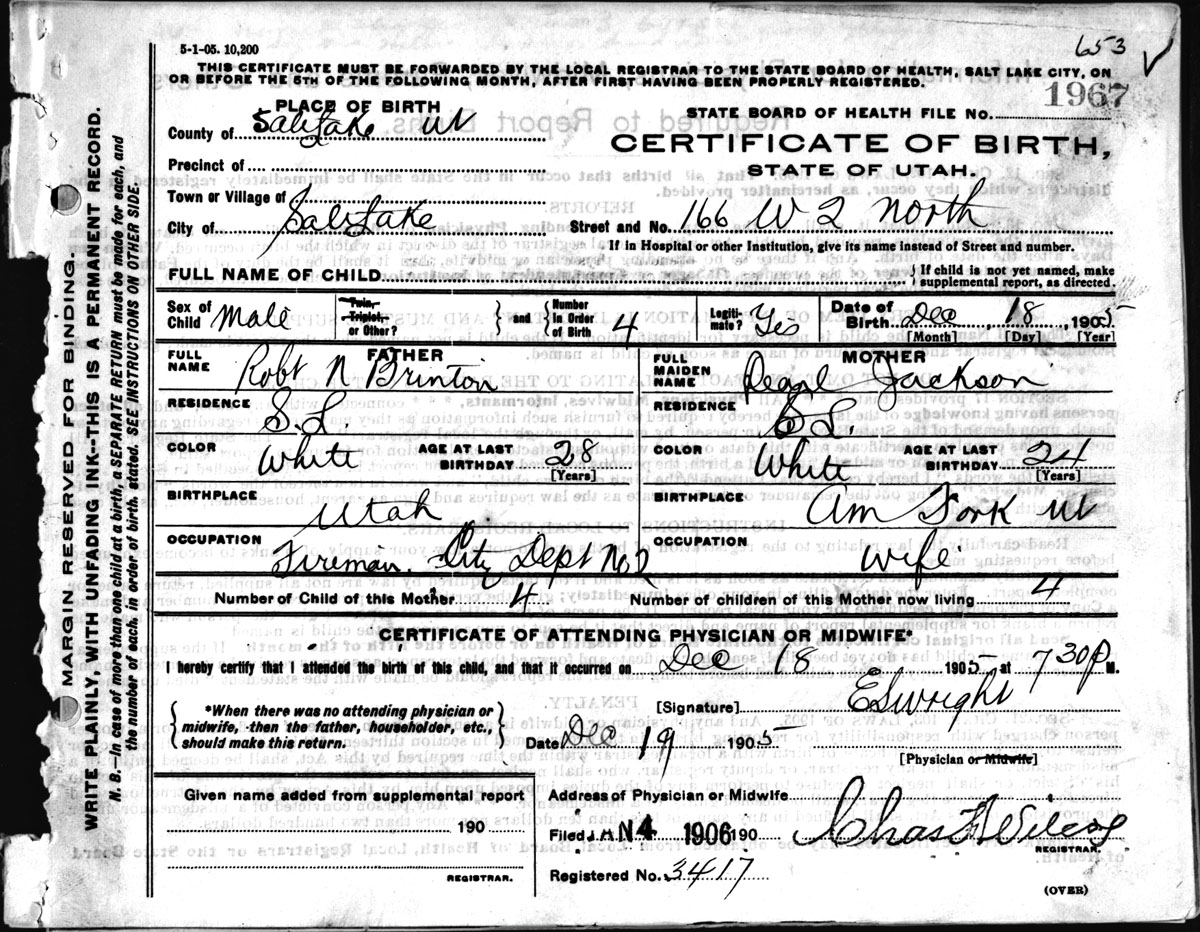 653
5-1-05. 10,200
THIS CERTIFICATE MUST BE FORWARDED BY THE LOCAL REGISTRAR TO THE STATE BOARD OF HEALTH, SALT LAKE CITY, ON
OR BEFORE THE 5TH OF THE FOLLOWING MONTH, AFTER FIRST HAVING BEEN PROPERLY REGISTERED.
1967
PLACE OF BIRTH
STATE BOARD OF HEALTH FILE No.
County of Salt Lake Ut
CERTIFICATE OF BIRTH,
Precinct of
STATE OF UTAH.
Town or Village of
City of Salt Lake Street and No. 166 W 2 North
If in Hospital or other Institution, give its name instead of Street and number.
FULL NAME OF CHILD } If child is not yet named, make supplemental report, as directed.
Sex of Child Male Twin, Triplet, or Other? } and { Number in Order of Birth 4 Legitimate? Yes Date of Birth Dec 18 1905
[Month] [Day] [Year]
FATHER MOTHER
FULL NAME Robt N Brinton FULL MAIDEN NAME Pearl Jackson
RESIDENCE S.L. RESIDENCE S L.
COLOR White AGE AT LAST BIRTHDAY 28 [Years] COLOR White AGE AT LAST BIRTHDAY 24 [Years]
BIRTHPLACE Utah BIRTHPLACE Am Fork Ut
OCCUPATION Fireman. City Dept No 2 OCCUPATION Wife
Number of Child of this Mother 4 Number of children of this Mother now living 4
CERTIFICATE OF ATTENDING PHYSICIAN OR MIDWIFE*
I hereby certify that I attended the birth of this child, and that it occurred on Dec 18 1905 at 7 30 P M.
[Signature] E S Wright
{ *When there was no attending physician or midwife, then the father, householder, etc., should make this return. }
Date Dec 19 1905
[Physician or Midwife]
Given name added from supplemental report
190
REGISTRAR.
Address of Physician or Midwife
Filed JAN 4 1906 190 Chas
REGISTRAR.
Registered No. 3417
(OVER)
MARGIN RESERVED FOR BINDING.
WRITE PLAINLY, WITH UNFADING INK--THIS IS A PERMANENT RECORD.
N. B.--In case of more than one child at birth, a SEPARATE RETURN must be made for each, and
the number of each, in order of birth, stated. SEE INSTRUCTIONS ON OTHER SIDE.